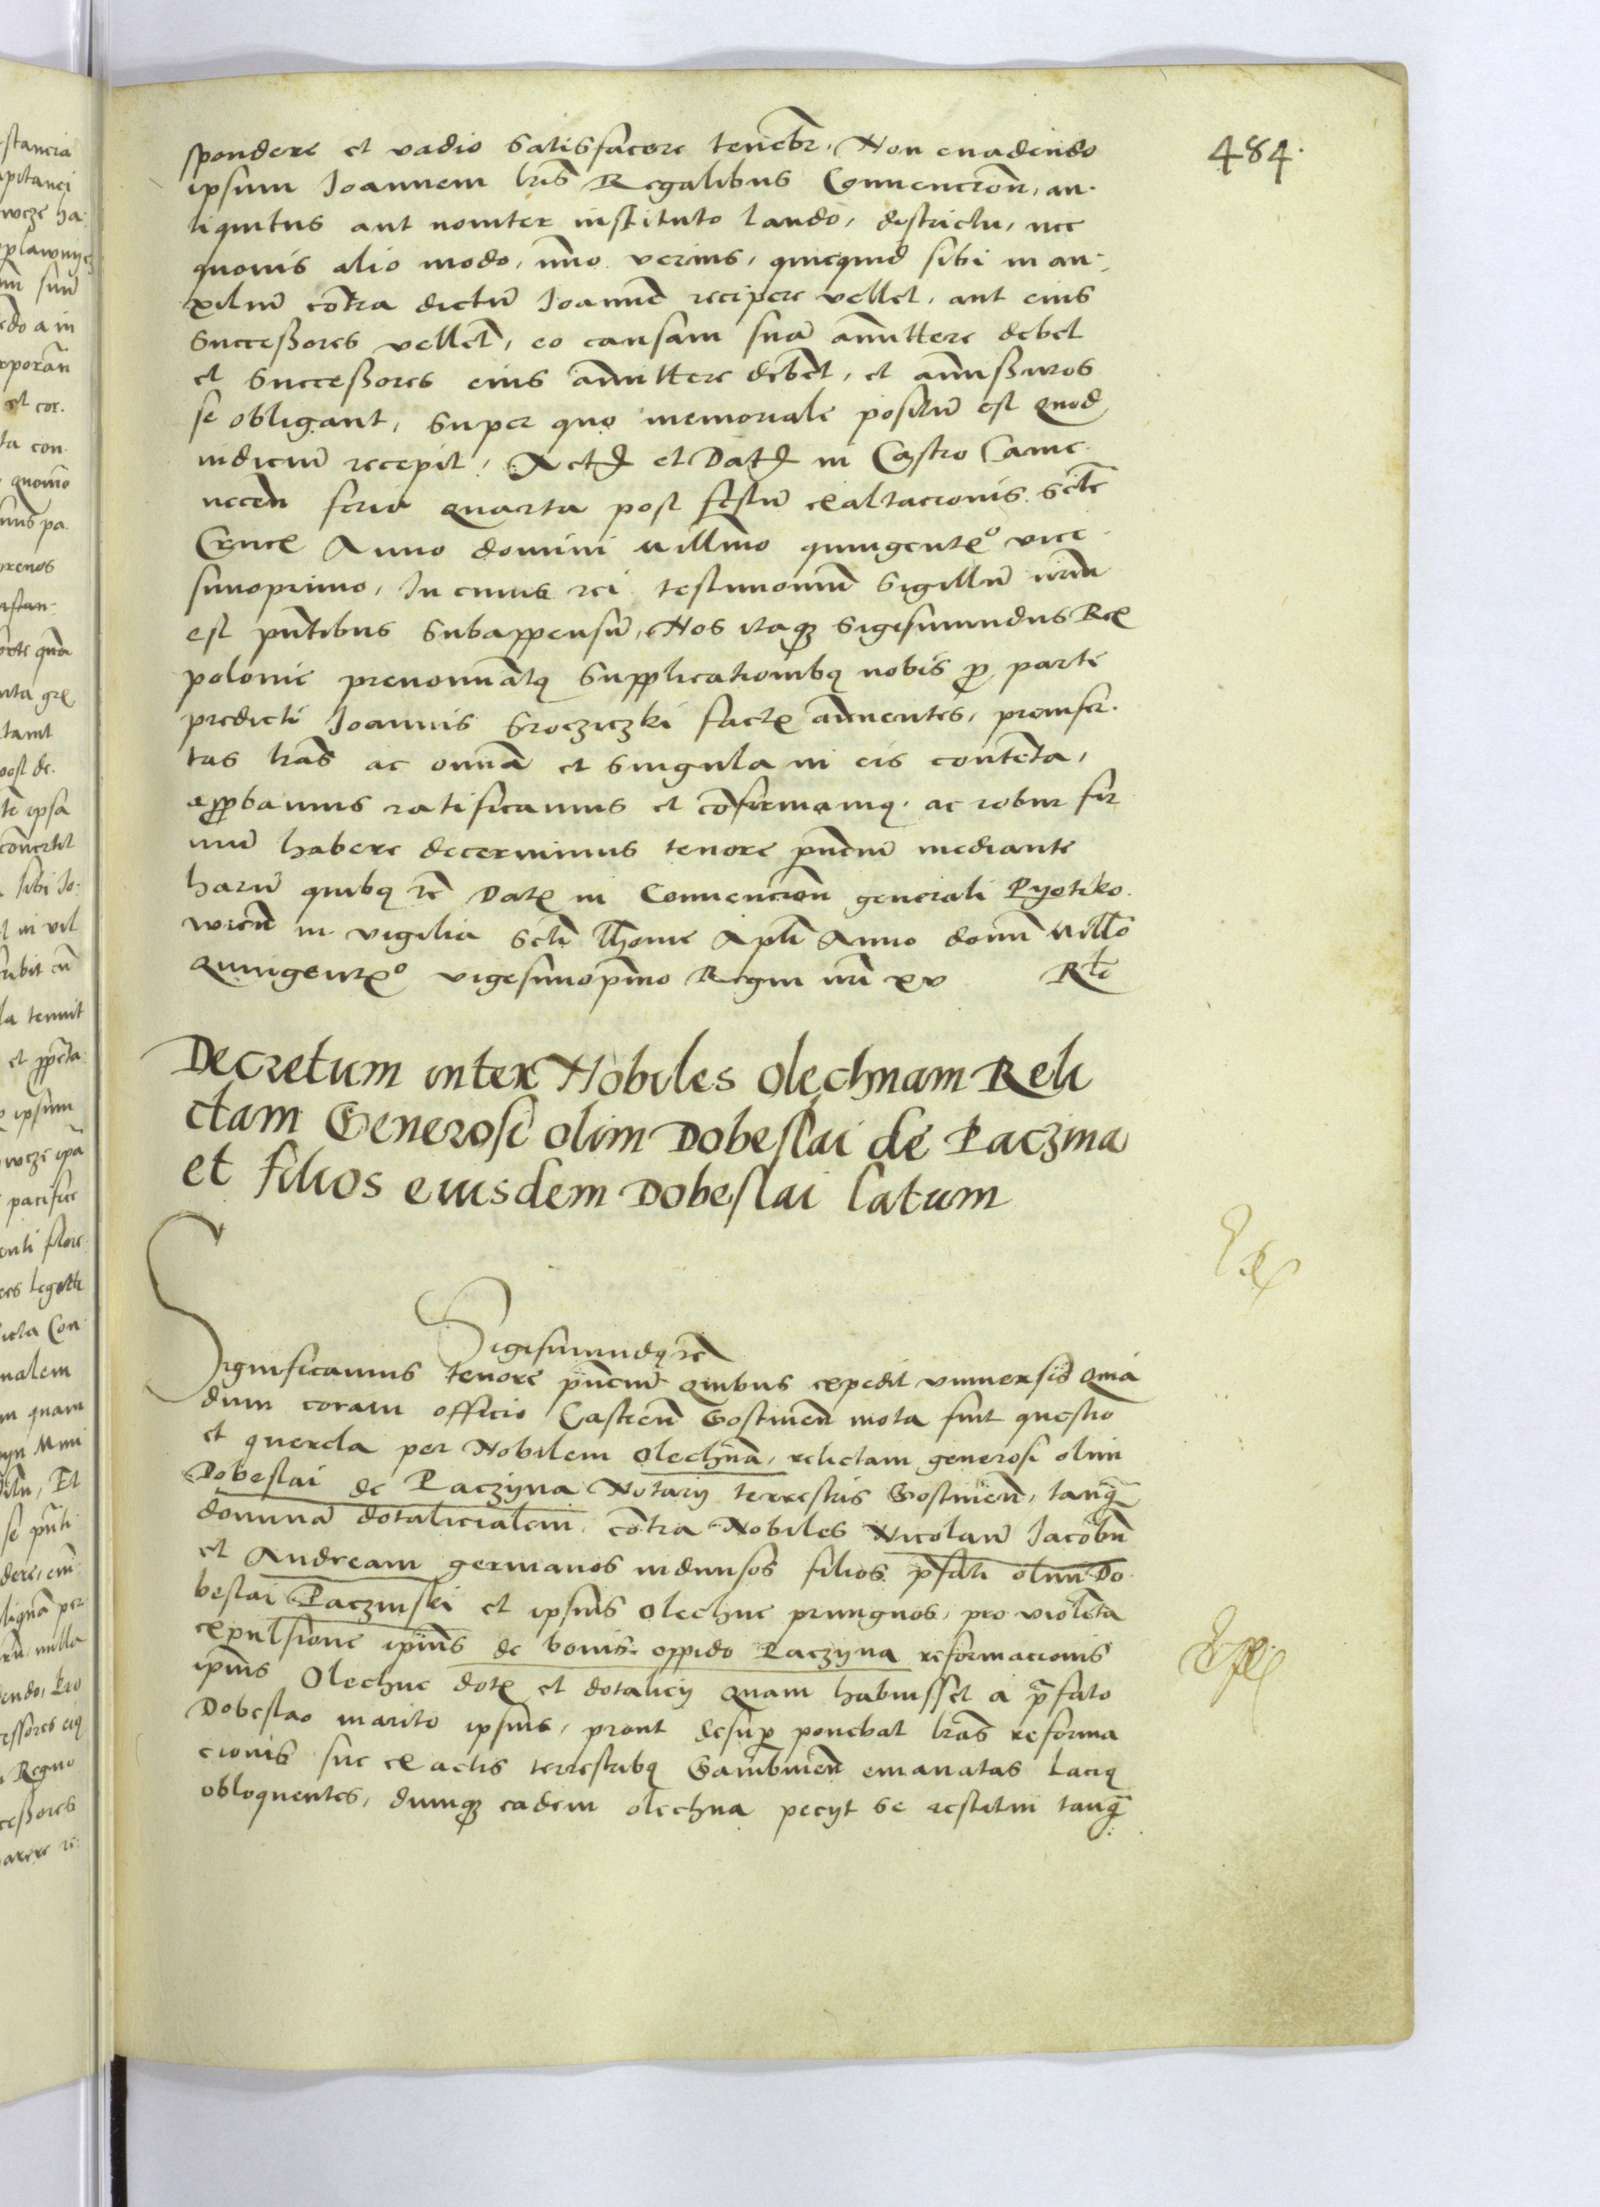 484.
spondere et vadio satisfacere tenebr̃, Non evadendo
ipsum Joannem lr̃is Regalibus Convencion̄, an-
tiquitus aut noviter instituto lando, districtu, nec
quovis alio modo, im̃o verius, quicquid sibi in au-
xiliũ con̄tra dictũ Joannē recipere vellet, aut eius
Successores vellēt, eo causam suã am̃ittere debet
et Successores eius am̃ittere debēt, et am̃issuros
se obligant, Super quo memoriale positũ est quod
iudiciũ recepit, Actꝭ et Datꝭ in Castro Came-
necen̄ feria quarta post festũ exaltacionis Sctē
Crucꝭ Anno domini millm̃o quingentꝭᵒ vice-
simoprimo, In cuius rei testimoniũ Sigillũ nrm̃
est pñtibus Subappensũ, Nos itaqꝫ Sigismundus Rex
polonie prenominatꝰ Supplicationibꝰ nobis ꝑ parte
predicti Joannis Sroczizki factꝭ annuentes, preinser-
tas lrãs ac omñia et Singula in eis contẽta,
approbamus ratificamus et cōfirmamꝰ, ac robur fir
mũ habere decernimus tenore pñciũ mediante
harũ quibꝰ rc̃ Datꝭ in Convencion̄ generali Pyotrko-
vien̄ in vigilia Sctī Thome Apli Anno domī Millō
Quingentꝭᵒ vigesimopr̃imo Regni nr̃i xv Rtĩ
Decretum inter Nobiles Olechnam Reli
ctam Generosi olim Dobeslai de Paczina
et filios eiusdem Dobeslai latum
Sigismundꝰ rc̃
Significamus tenore pñciũ quibus expedit universis Quia
dum coram officio Castren̄ Gostinen̄ mota fuit questio
et querela per Nobilem Olechnã, relictam generosi olim
Dobeslai de Paczyna Notarij terrestris Gostinien̄, tanqꝫ
dominã dotalicialem, cōtra Nobiles Nicolaũ Jacobũ
et Andream germanos indivisos filios p̃fati olim Do
beslai Paczinski et ipsius Olechne privignos, pro violẽta
expulsione ip̃ius de bonis oppido Paczyna reformacionis
ip̃ius Olechne dotꝭ et dotalicij quam habuisset a p̃fato
Dobeslao marito ipsius, prout desuꝑ ponebat lrãs reforma
cionis sue ex actis terrestribꝰ Gambinen̄ emanatas laciꝰ
obloquentes, dumqꝫ eadem Olechna pecijt se restitui tanqꝫ